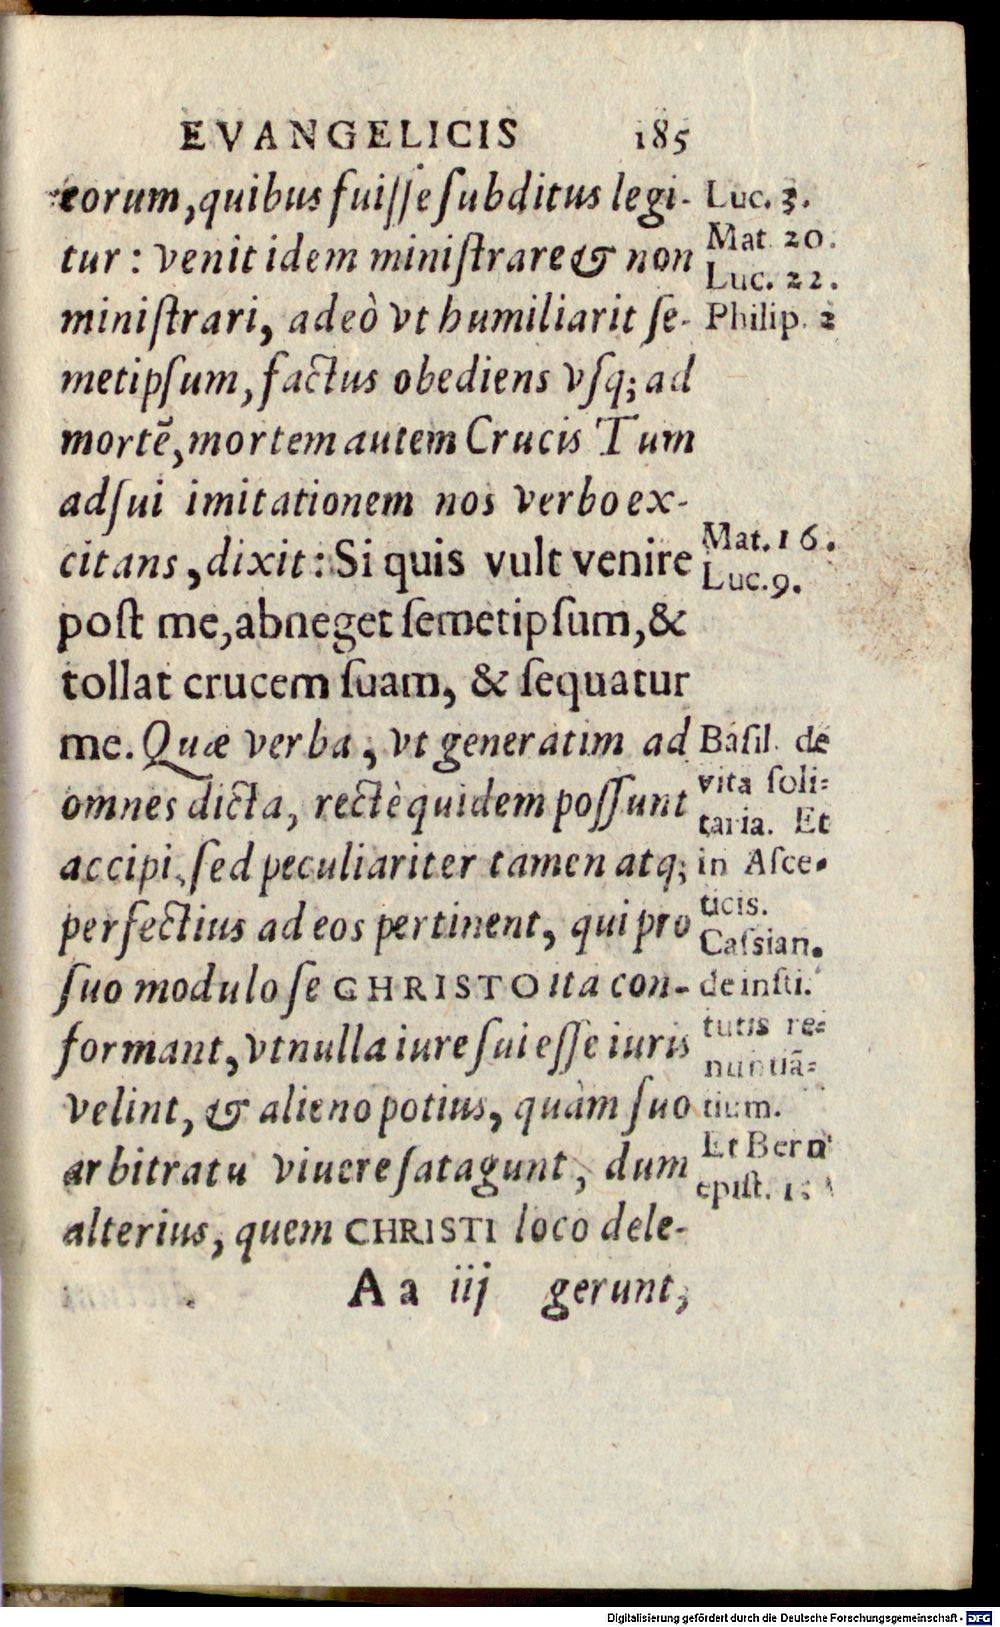 EVANGELICIS 185
eorum, quibus fuiſſe ſubditus legi-
tur: venit idem miniſtrare & non
miniſtrari, adeò vt humiliarit ſe-
metipſum, factus obediens vſq; ad
mortē, mortem autem Crucis Tum
ad ſui imitationem nos verbo ex-
citans, dixit: Si quis vult venire
poſt me, abneget ſemetipſum, &
tollat crucem ſuam, & ſequatur
me. Quæ verba, vt generatim ad
omnes dicta, rectè quidem poſſunt
accipi, ſed peculiariter tamen atq;
perfectius ad eos pertinent, qui pro
ſuo modulo ſe CHRISTO ita con-
formant, vt nulla iure ſui eſſe iuris
velint, & alieno potius, quàm ſuo
arbitratu viuere ſatagunt, dum
alterius, quem CHRISTI loco dele-
Aa iij gerunt,
Luc. 3.
Mat. 20.
Luc. 22.
Philip. 2
Mat. 16.
Luc. 9.
Baſil. de
vita ſoli-
taria. Et
in Aſce-
ticis.
Caſsian.
de inſti.
tutis re-
nuntiā-
tium.
Et Bern
epiſt.
Digitalisierung gefördert durch die Deutsche Forschungsgemeinschaft - DFG